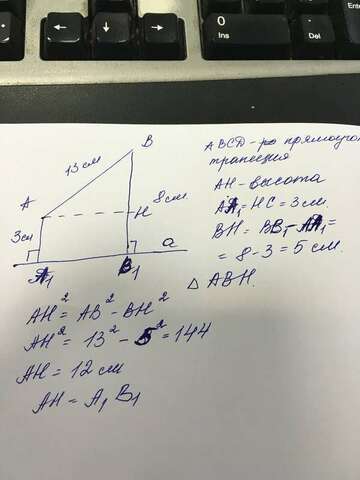 0
Ins
.
Del
Enter
B
13 см
A
H
8 см.
3 см
a
A₁
B₁
ABCD - прямоуго
трапеция
AH - высота
AA₁ = HC = 3 см.
BH = BB₁ - AA₁ =
= 8 - 3 = 5 см.
△ ABH.
AH² = AB² - BH²
AH² = 13² - 5² = 144
AH = 12 см
AH = A₁ B₁